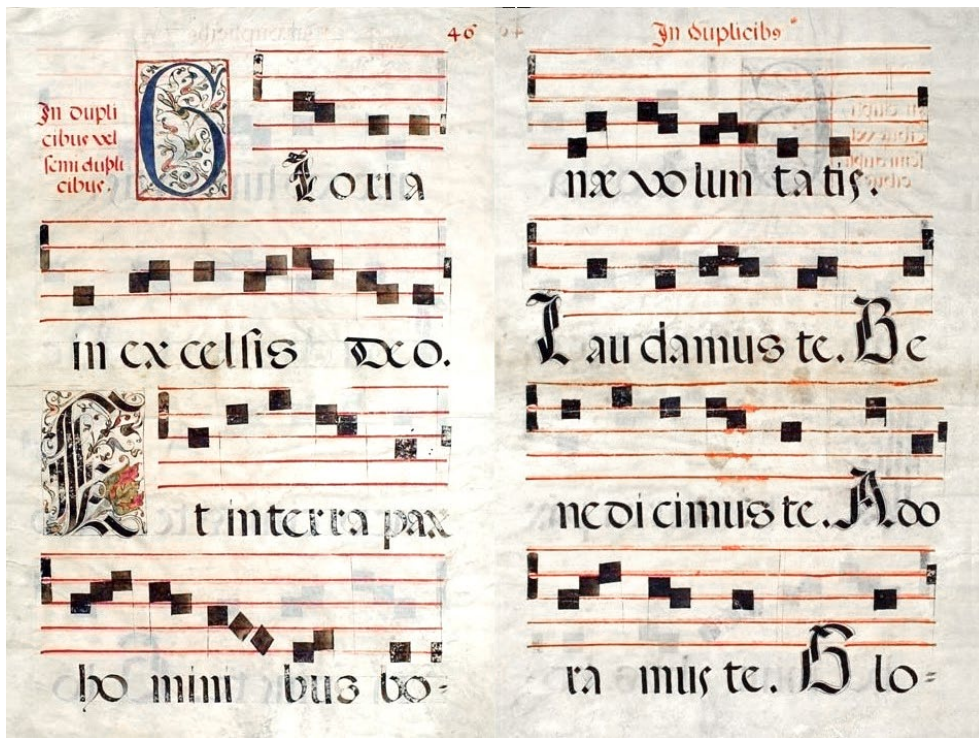 46
In dupli
cibus vel
semi dupli
cibus.
GLoria
in ex celsis Deo.
Et in terra pax
ho mini bus bo-
In duplicibꝰ
næ volun tatis.
Lau damus te. Be
nedi cimus te. Ado
ra mus te. Glo-